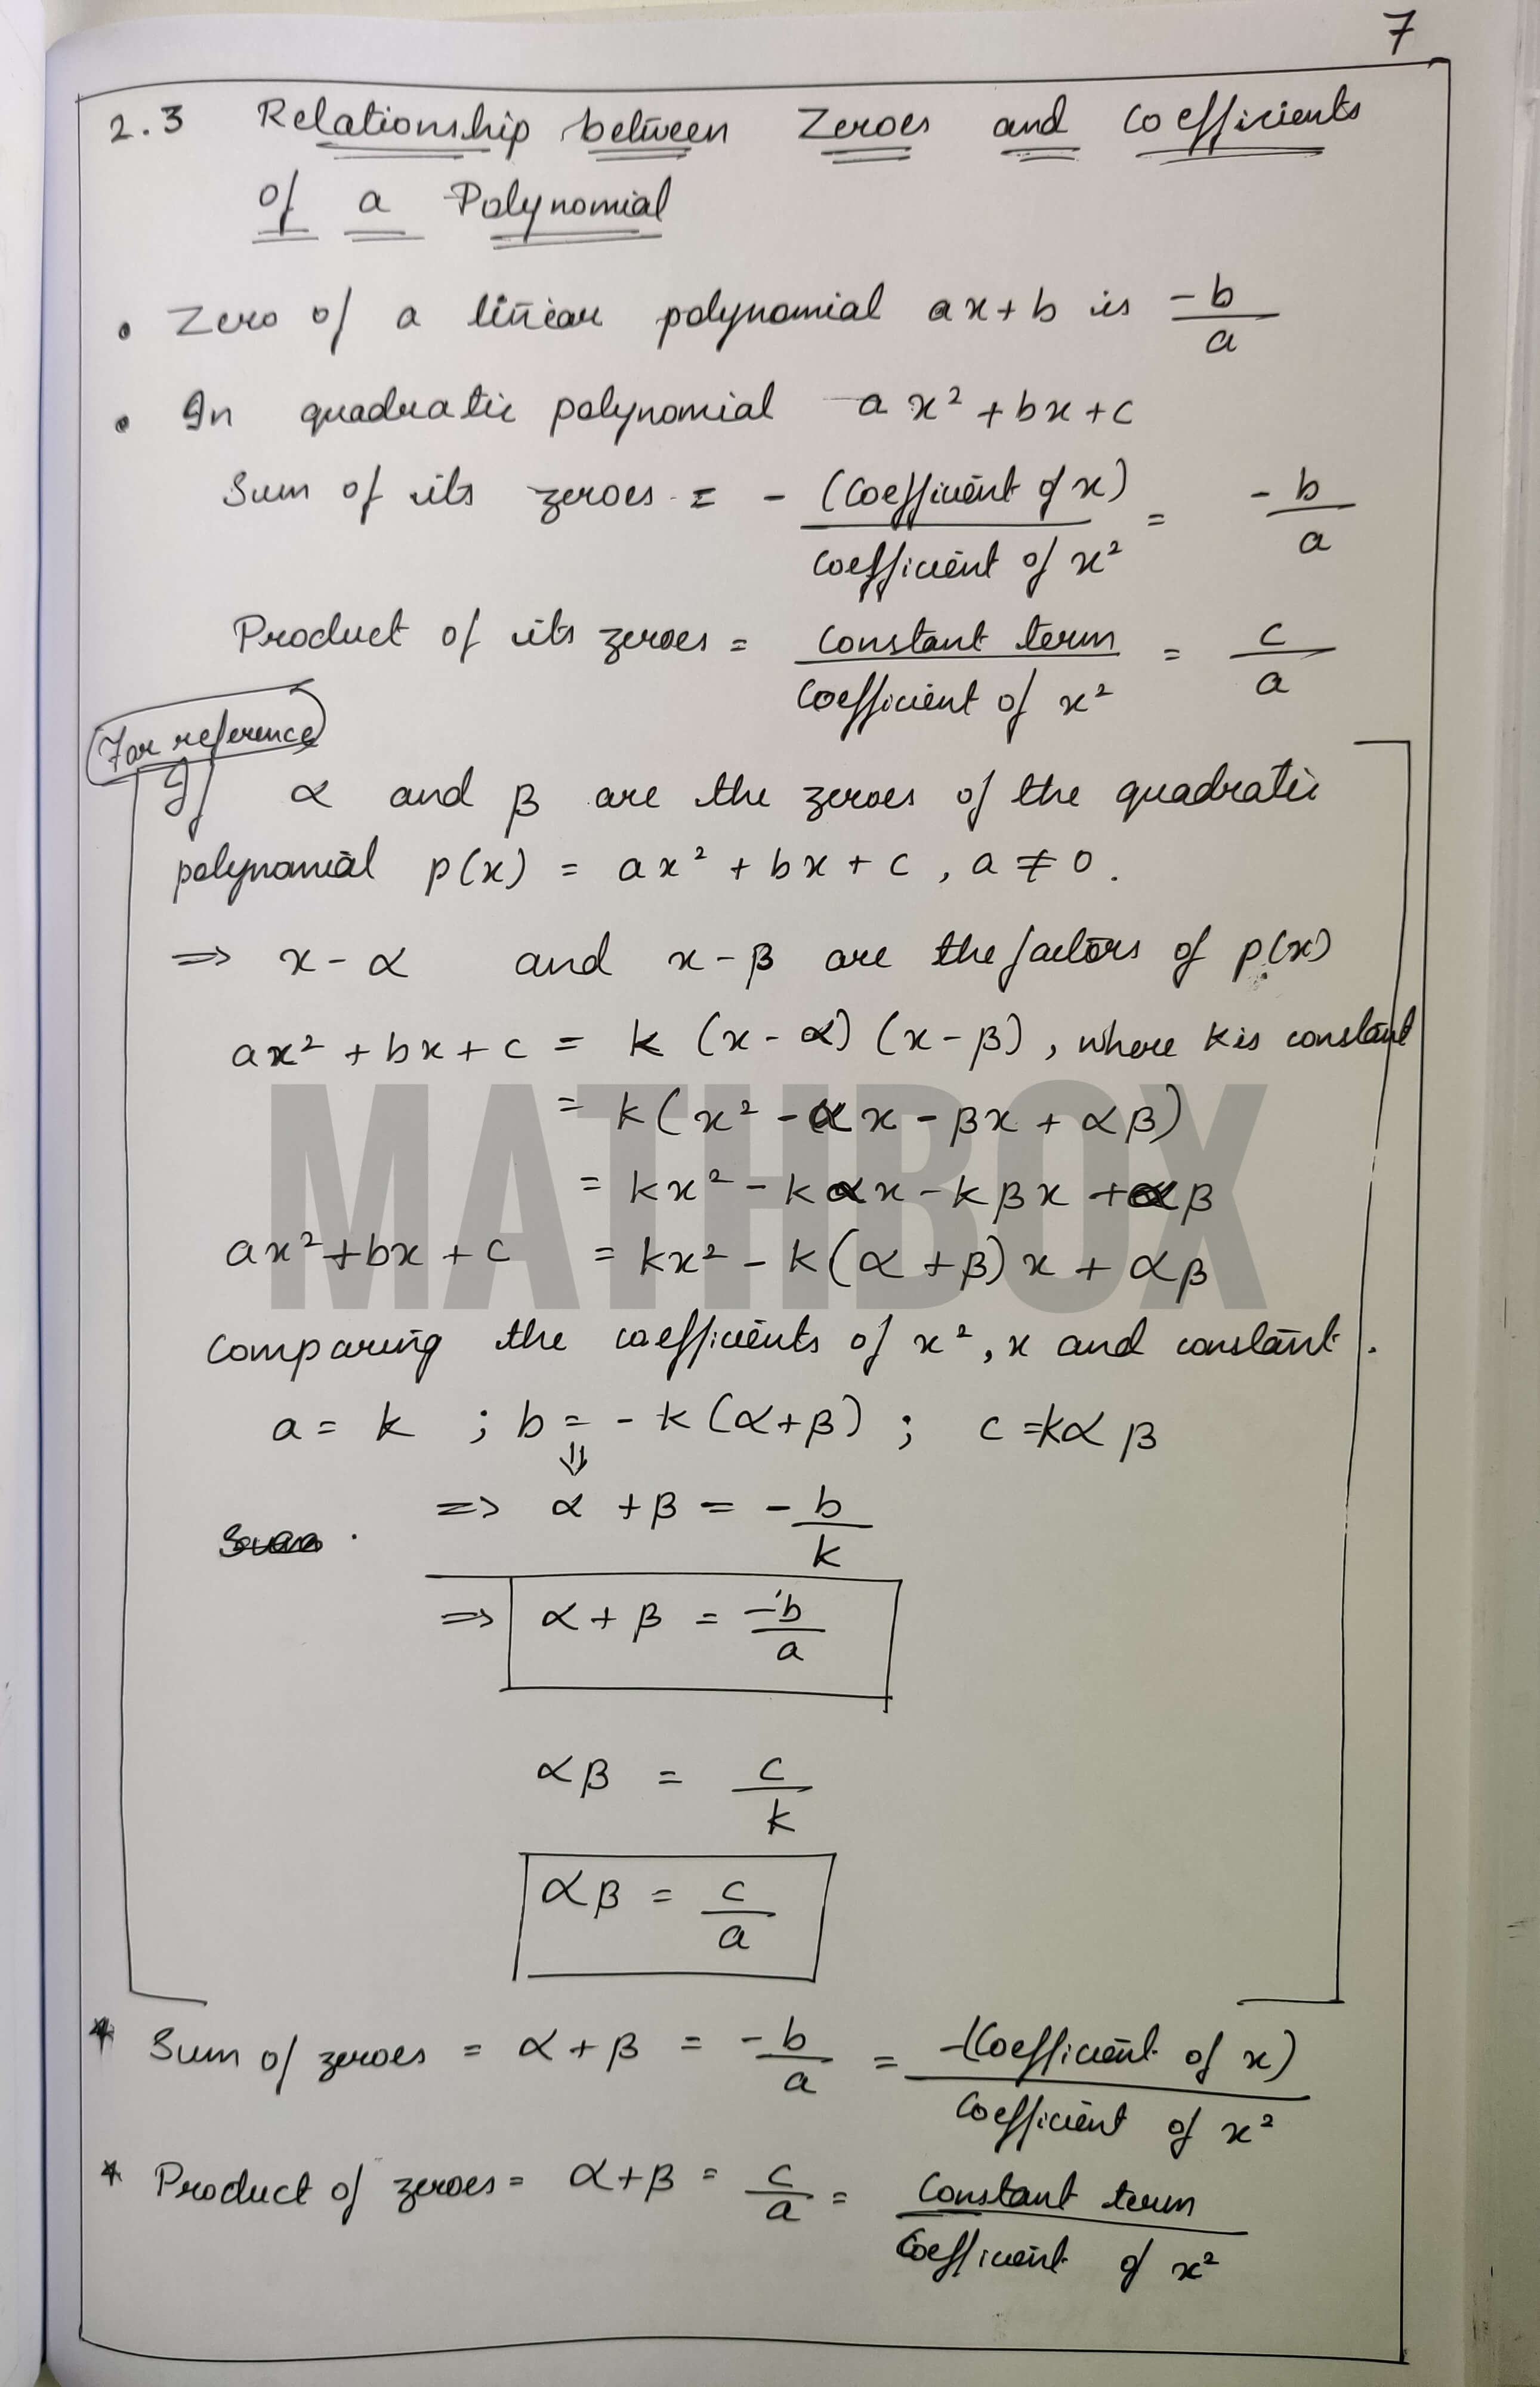 7
2.3 Relationship between Zeroes and Coefficients
of a Polynomial
• Zero of a linear polynomial ax+b is -b/a
• In quadratic polynomial ax² + bx + c
Sum of its zeroes = - (Coefficient of x)/Coefficient of x² = -b/a
Product of its zeroes = Constant term/Coefficient of x² = c/a
For reference
If α and β are the zeroes of the quadratic
polynomial p(x) = ax² + bx + c, a ≠ 0.
=> x - α and x - β are the factors of p(x)
ax² + bx + c = k (x - α) (x - β), where k is constant
= k(x² - αx - βx + αβ)
= kx² - kαx - kβx + αβ
ax² + bx + c = kx² - k(α + β)x + αβ
MATHBOX
Comparing the coefficients of x², x and constant.
a = k ; b = - k(α+β) ; c = kαβ
⇓
=> α + β = -b/k
=> α + β = -b/a
αβ = c/k
αβ = c/a
* Sum of zeroes = α + β = -b/a = -(Coefficient of x)/Coefficient of x²
* Product of zeroes = α + β = c/a = Constant term/Coefficient of x²